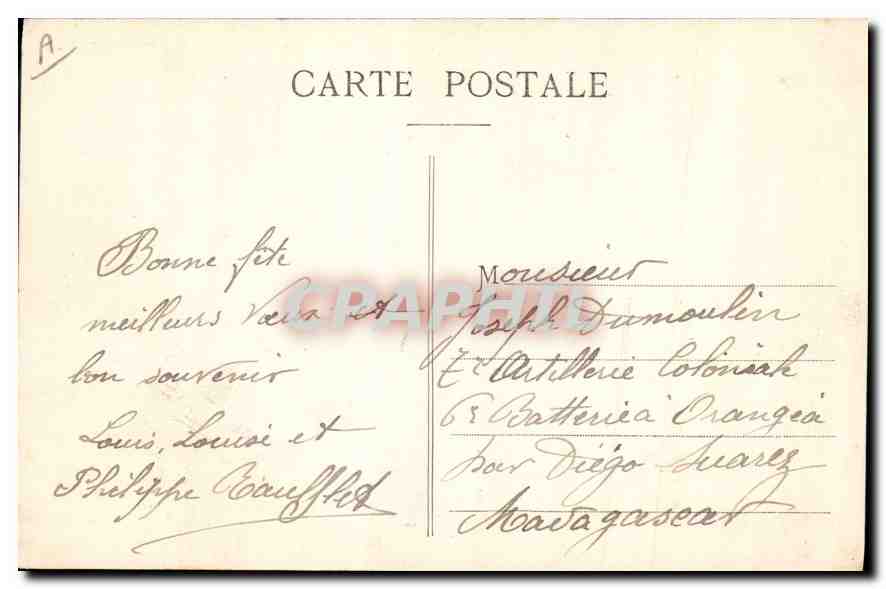 A
CARTE POSTALE
Bonne fête
meilleurs Vœux et
bon souvenir
Louis, Louise et
Philippe
Monsieur
Joseph Dumoulin
7e Artillerie Coloniale
6e Batterie à Orangéa
par Diégo Suarez
Madagascar
CPAPHIL